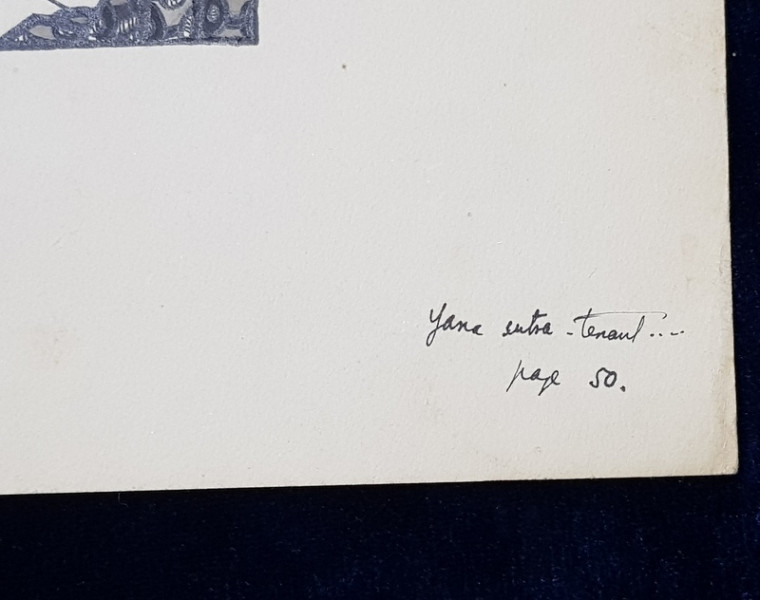 Yana entra-tenant....
page 50.